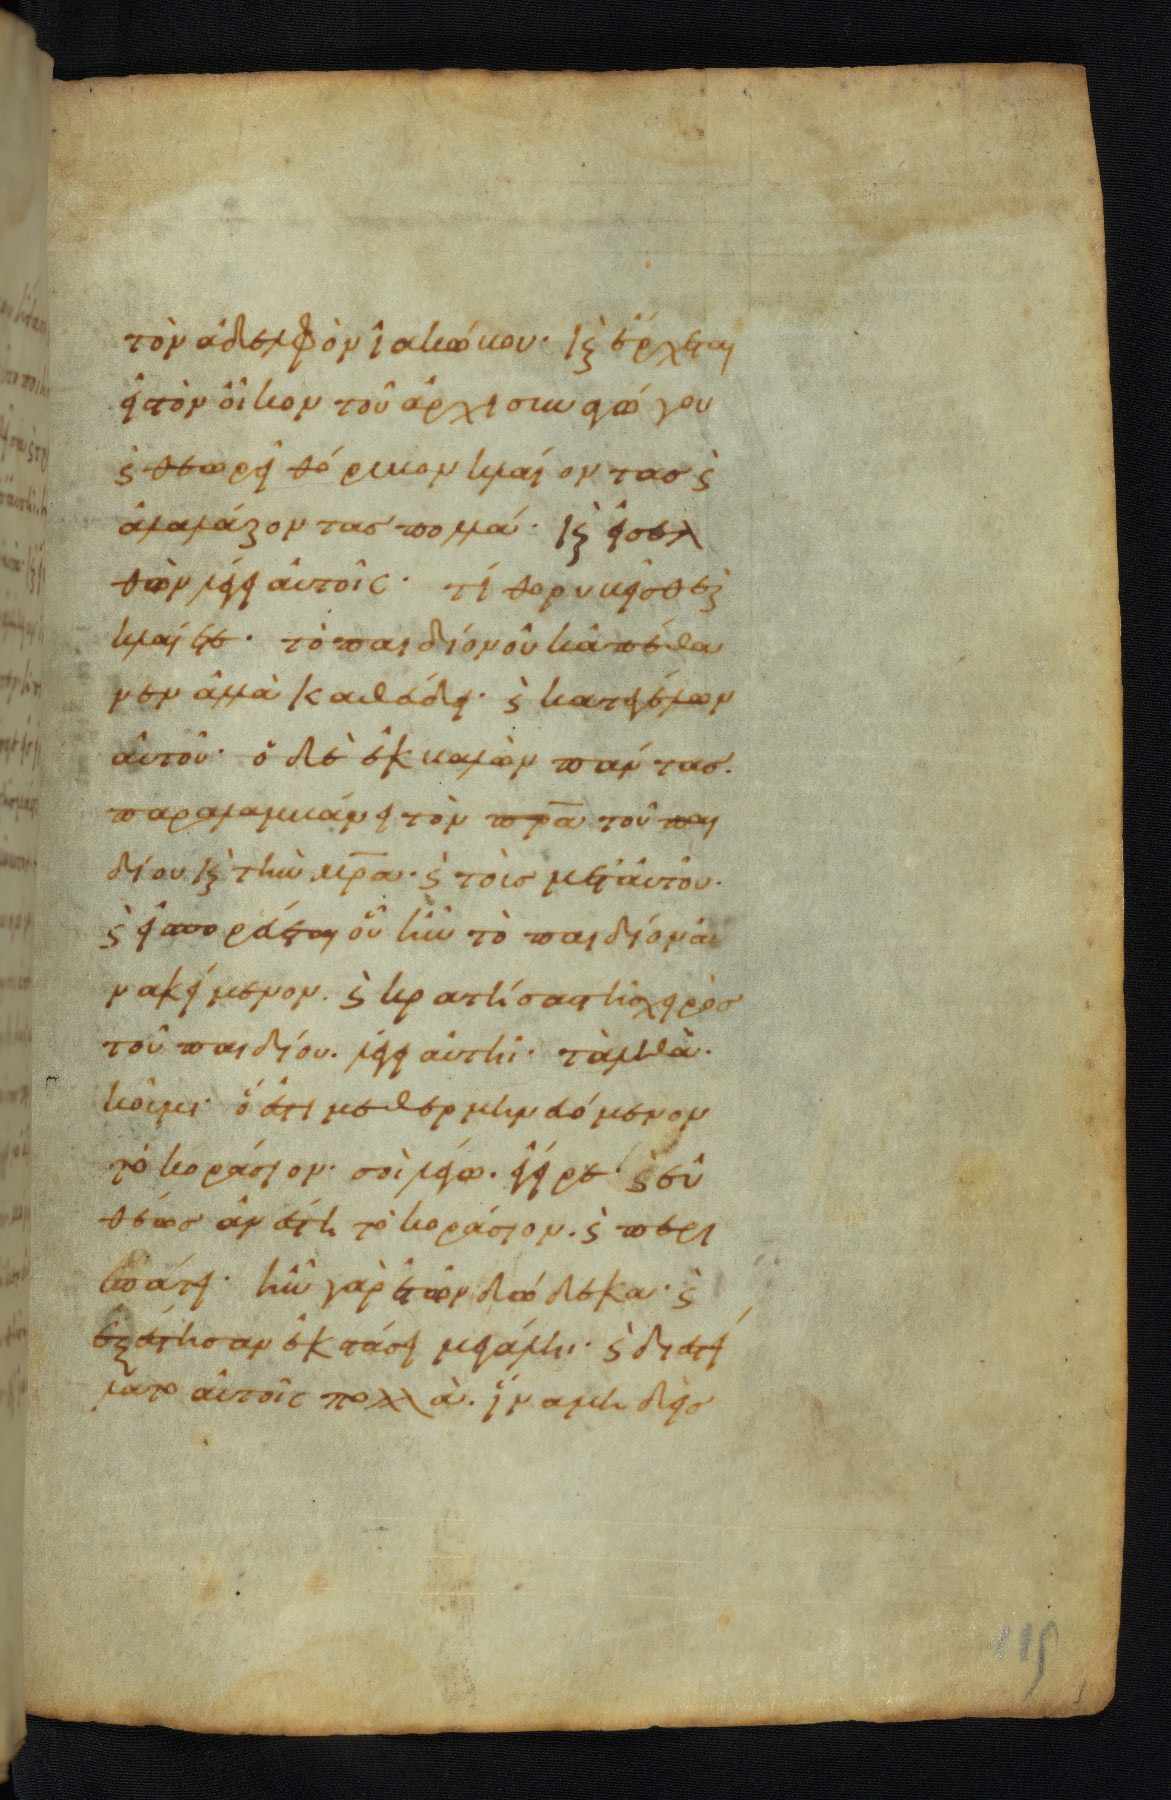 τὸν ἀδελφὸν ἰακώβου· κ(αὶ) ἔρχεται
εἰς τὸν οἶκον τοῦ ἀρχισυναγώγου
κ(αὶ) θεωρεῖ θόρυβον κλαίοντας κ(αὶ)
ἀλαλάζοντας πολλά· κ(αὶ) εἰσελ
θὼν λέγει αὐτοῖς· τί θορυβεῖσθε κ(αὶ)
κλαίετε· τὸ παιδίον οὐκ ἀπέθα
νεν ἀλλὰ καθεύδει· κ(αὶ) κατεγέλων
αὐτοῦ· ὁ δὲ ἐκβαλὼν πάντας·
παραλαμβάνει τὸν πρ̅α τοῦ παι
δίου κ(αὶ) τὴν μρ̅α· κ(αὶ) τοὺς μετ' αὐτοῦ·
κ(αὶ) εἰσπορεύεται οὗ ἦν τὸ παιδίον ἀ
νακείμενον· κ(αὶ) κρατήσας τῆς χειρὸς
τοῦ παιδίου· λέγει αὐτῆ· ταλιθὰ·
κοῦμι· ὅ ἐστι μεθερμηνευόμενον
τὸ κοράσιον· σοὶ λέγω· ἔγειρε· κ(αὶ) εὐ
θέως ἀνέστη τὸ κοράσιον· κ(αὶ) περι
επάτει· ἦν γὰρ ἐτῶν δώδεκα· κ(αὶ)
ἐξέστησαν ἐκστάσει μεγάλη· κ(αὶ) διεστεί
λατο αὐτοῖς πολλὰ· ἵνα μηδεὶς